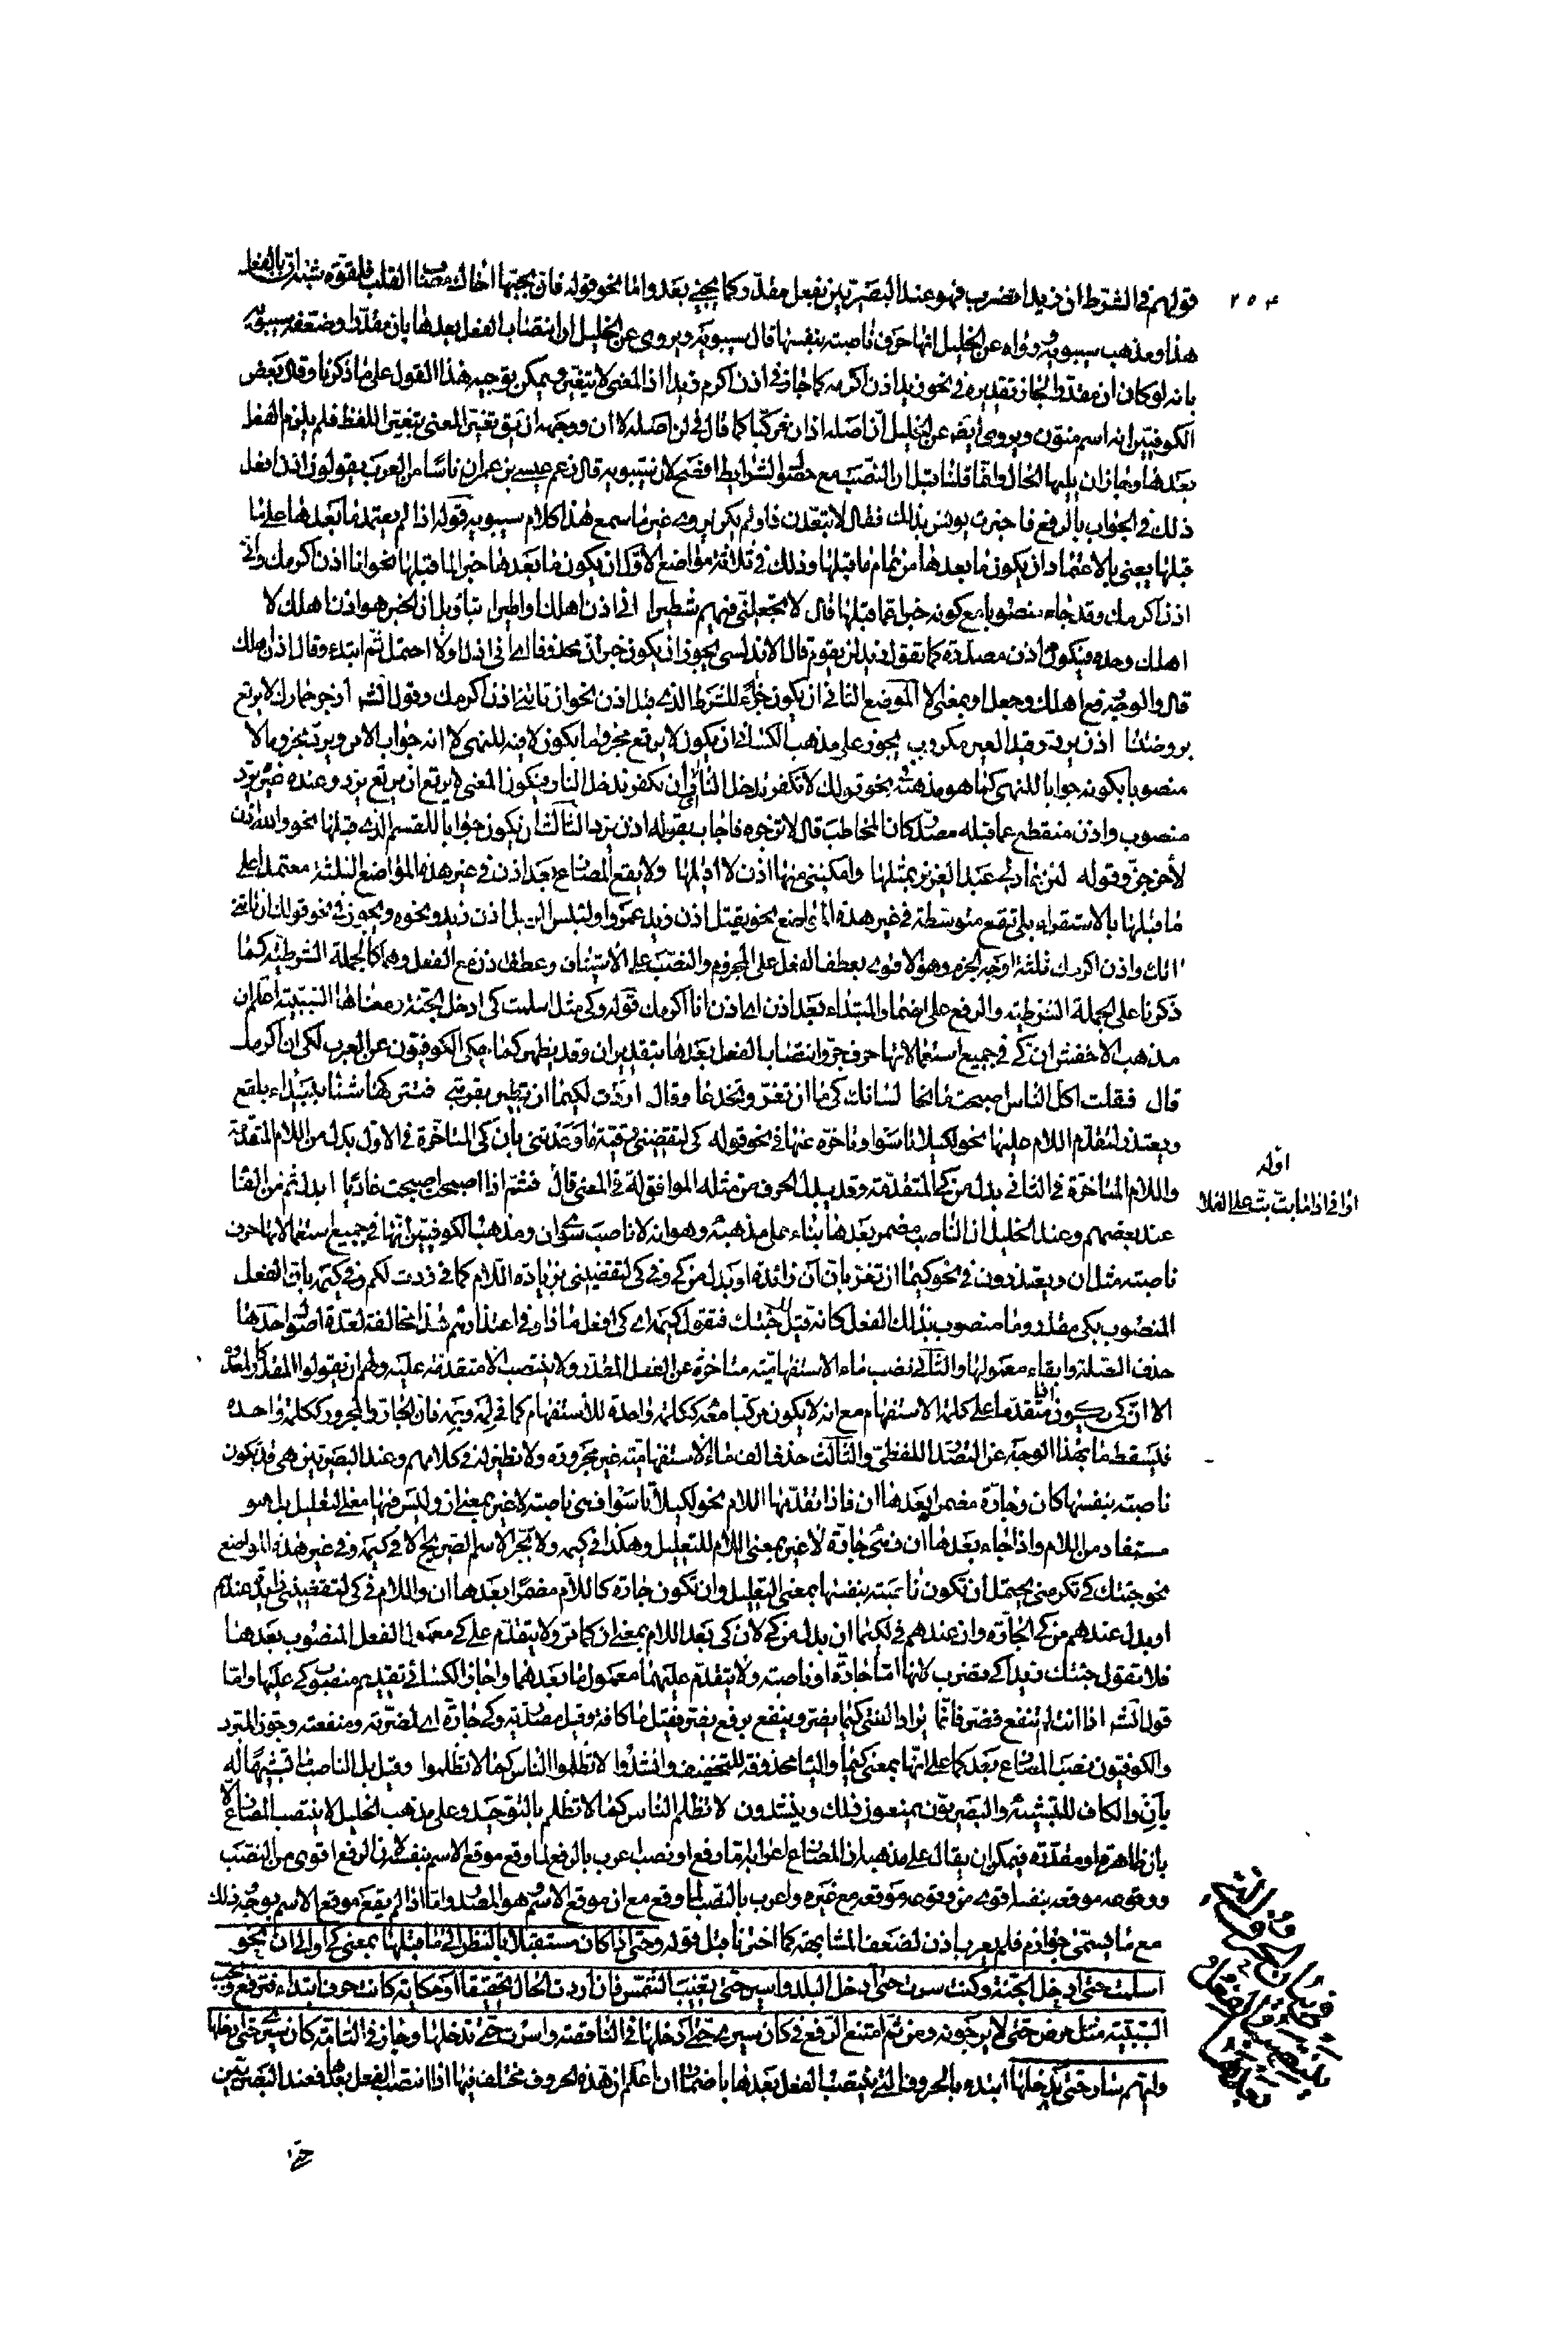 ٢٥٤
قولهم في الشرط ان زيدا تضرب فهو عند البصريين بفعل مقدر كما يجئ بعد واما نحو قوله فان بحبها اخاك مصاب القلب فلقوة شبه ان بالفعل
هذا ومذهب سيبويه ورواه عن الخليل انها حرف ناصبة بنفسها قال سيبويه ويروى عن الخليل ان انتصاب الفعل بعدها بان مقدرا وضعفه سيبويه
بانه لو كان ان مقدرا لجاز تقديره في نحو زيد اذن اكرمه كما جاز في اذن اكرم زيدا اذ المعنى لا يتغير ويمكن توجيه هذا القول على ما ذكرنا وقال بعض
الكوفيين انه اسم منون ويروى ايضا عن الخليل ان اصله اذ ان فركبا كما قال في لن اصله لا ان ووجهه ان يق تغير المعنى بتغير اللفظ فلم يلزم الفعل
بعدها وجاز ان يليها الحال وانما قلنا قبل ان النصب مع حصول الشرايط افصح لان سيبويه قال زعم عيسى بن عمر ان ناسا من العرب يقولون اذن افعل
ذلك في الجواب بالرفع فاخبرت يونس بذلك فقال لا تبعدن ذا ولم يكن ليروى غير ما سمع هذا كلام سيبويه قوله اذا لم يعتمد ما بعدها على ما
قبلها يعنى بالاعتماد ان يكون ما بعدها من تمام ما قبلها وذلك في ثلاثة مواضع الاول ان يكون ما بعدها خبرا لما قبلها نحو انا اذن اكرمك وانى
اذن اكرمك وقد جاء منصوبا مع كونه خبرا عما قبلها قال لا تجعلني فيهم شطيرا انى اذن اهلك او اطيرا بتأويل ان الخبر هو اذن اهلك لا
اهلك وحده فيكون اذن مصدرة كما تقول زيد لن يقوم قال الاندلسى يجوز ان يكون خبر ان محذوفا اى انى اذل او لا احتمل ثم ابتدء وقال اذن اهلك
قال والوجه رفع اهلك وجعل او بمعنى الا الموضع الثاني ان يكون جزاء للشرط الذي قبل اذن نحو ان تاتنى اذن اكرمك وقول الشـ ازجر حمارك لا يرتع
بروضتنا اذن يرد وقيد العير مكروب يجوز على مذهب الكسائى ان يكون لا يرتع مجزوما بكون لا فيه للنهى لا انه جواب الامر ويرد مجزوما لا
منصوبا بكونه جوابا للنهى كما هو مذهبه نحو قولك لا تكفر تدخل النار اى ان تكفر تدخل النار فيكون المعنى لا يرتع ان يرتع يرد وعند غيره يرد
منصوب واذن منقطع عما قبله مصدر كان المخاطب قال لا ازجره فاجاب بقوله اذن يرد الثالث ان يكون جوابا للقسم الذي قبلها نحو والله اذن
لأخرجن وقوله لئن عاد لى عبد العزيز بمثلها وامكنني منها اذن لا اقيلها ولا يقع المضارع بعد اذن في غير هذه المواضع الثلثة معتمدا على
ما قبلها بالاستقراء بلى تقع متوسطة في غير هذه المواضع نحو يقتل اذن زيد عمروا ولبئس الرجل اذن زيد ونحوه ويجوز في نحو قولك ان تاتنى
اتك واذن اكرمك ثلثة اوجه الجزم وهو الاقوى بعطف الفعل على المجزوم والنصب على الاستيناف وعطف اذن مع الفعل وهما كالجملة الشرطية كما
ذكرنا على الجملة الشرطية والرفع على اضمار المبتداء بعد اذن اى اذن انا اكرمك قوله وكى مثل اسلمت كى ادخل الجنة ومعناها السببية اعلم ان
مذهب الاخفش ان كى في جميع استعمالاتها حرف جر وانتصاب الفعل بعدها بتقدير ان وقد يظهر كما حكى الكوفيون عن العرب لكى ان اكرمك
قال فقلت اكل الناس اصبحت مانحا لسانك كيما ان تغر وتخدعا وقال اردت لكيما ان تطير بقربتى فتتركها شنا ببيداء بلقع
ويعتذر لتقدم اللام عليها نحو لكيلا تأسوا وتاخره عنها في نحو قوله كى لتقضينى رقية ما وعدتنى بأن كى المتأخرة في الاول بدل من اللام المتقدمة
واللام المتاخرة في الثانى بدل من كى المتقدمة وقد يبدل الحرف من مثله الموافق له في المعنى قال فثم اذا اصبحت اصبحت غاديا ابدل ثم من الفاء
اوله
ارانى اذا ما بت بت على الهوى
عند بعضهم وعند الخليل ان الناصب مضمر بعدها بناء على مذهبه وهو انه لا ناصب سوى ان ومذهب الكوفيين انها في جميع استعمالاتها حرف
ناصبة مثل ان ويعتذرون في نحو كيما ان تغر بان ان زائدة او بدل من كى وفي كى لتقضينى بزيادة اللام كما في ردت لكم وفي كيمه بان الفعل
المنصوب بكى مقدر وما منصوب بذلك الفعل كانه قيل جئتك فتقول كيمه اى كى افعل ماذا وفي اعتذارهم هذا مخالفة لعدة اصول احدها
حذف الصلة وابقاء معمولها والثانى نصب ماء الاستفهامية متاخرة عن الفعل المقدر ولا ينتصب الا متقدمة عليه ولهم ان يقولوا المقدر كالمعدوم
الا ان كى يكون ايضا متقدما على كلمة الاستفهام مع انه لا يكون مركبا معه ككلمة واحدة للاستفهام كما في لمه وبمه فان الجار والمجرور ككلمة واحدة
فليسقط ما بهذا الوجه عن التصدر اللفظى والثالث حذف الف ماء الاستفهامية غير مجرورة ولا نظير له في كلامهم وعند البصريين هى قد تكون
ناصبة بنفسها كان وجارة مضمرا بعدها ان فاذا تقدمها اللام نحو لكيلا تأسوا فهى ناصبة لا غير بمعنى ان وليس فيها معنى التعليل بل هو
مستفاد من اللام واذا جاء بعدها ان فهى جارة لا غير بمعنى اللام للتعليل وهكذا في كيمه ولا تجر الاسم الصريح الا في كيمه وفي غير هذه المواضع
نحو جئتك كى تكرمنى يحتمل ان تكون ناصبة بنفسها بمعنى التعليل وان تكون جارة كاللام مضمرا بعدها ان واللام في كى لتقضينى زايد عندهم
او بدل عندهم من كى الجارة وان عندهم في لكيما ان بدل من كى لان كى بعد اللام بمعنى ان كما مر ولا يتقدم على كى معمول الفعل المنصوب بعدها
فلا تقول جئتك زيدا كى تضرب لانها اما جارة او ناصبة ولا يتقدم عليهما معمول ما بعدهما واجاز الكسائى تقديم منصوب كى عليها واما
قول الشـ اذا انت لم تنفع فضر فانما يراد الفتى كيما يضر وينفع برفع يضر فقيل ما كافة وقيل مصدرية وكى جارة اى لمضرته ومنفعته وجوز المبرد
والكوفيون نصب المضارع بعد كما على انها بمعنى كيما والياء محذوفة للتخفيف وانشدوا لا تظلموا الناس كما لا تظلموا وقيل بل الناصب ما تشبيها له
بان والكاف للتشبيه والبصريون يمنعون ذلك وينشدون لا تظلم الناس كما لا تظلم بالتوحيد وعلى مذهب الخليل لا ينتصب المضارع الا
بان ظاهرة او مقدرة فيمكن ان يقال على مذهبه ان المضارع اعرابه اما رفع او نصب اعرب بالرفع لما وقع موقع الاسم بنفسه لان الرفع اقوى من النصب
ووقوعه موقعه بنفسه اقوى من وقوعه موقعه مع غيره واعرب بالنصب لما وقع مع ان موقع الاسم هو المصدر واما اذا لم يقع موقع الاسم بوجه وذلك
مع ما يسمى جوازم فلم يعرب اذن لضعف المشابهة كما اخترنا قبل قوله وحتى اذا كان مستقبلا بالنظر الى ما قبلها بمعنى كى او الى ان نحو
اسلمت حتى ادخل الجنة وكنت سرت حتى ادخل البلد واسير حتى تغيب الشمس فان اردت الحال تحقيقا او حكاية كانت حرف ابتداء فترفع وتجب
السببية مثل مرض حتى لا يرجونه ومن ثم امتنع الرفع في كان سيرى حتى ادخلها في الناقصة واسرت حتى تدخلها وجاز في التامة كان سيرى حتى ادخلها
وايهم سار حتى يدخلها ابتدء بالحروف التى ينتصب الفعل بعدها باضمار ان اعلم ان هذه الحروف مختلف فيها اذا انتصب الفعل بعدها فعند البصريين